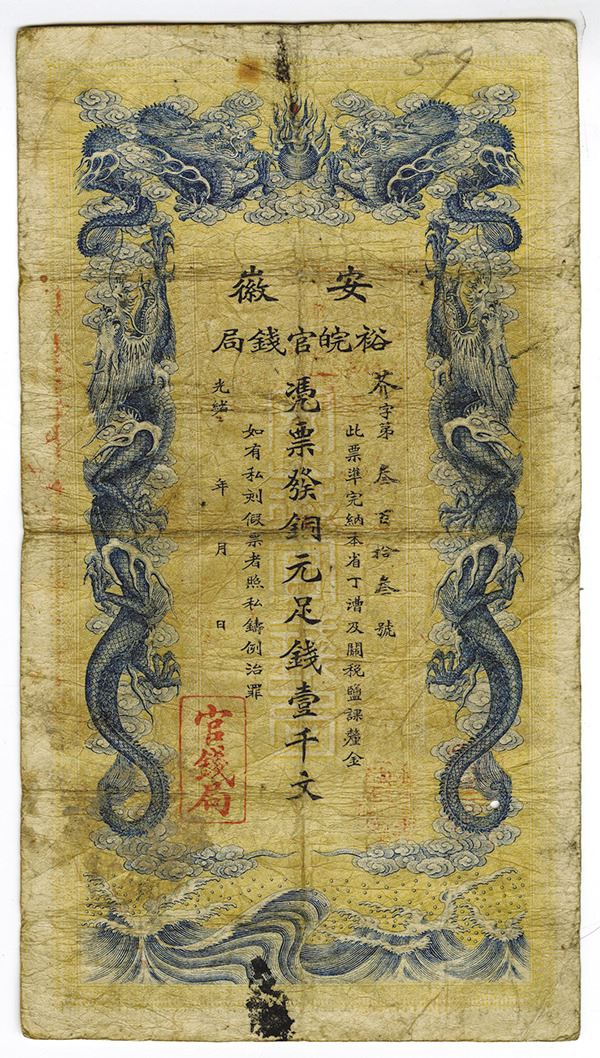 59
安徽
裕皖官錢局
芥字第叁百拾叁號
此票準完納本省丁漕及關税鹽課釐金
憑票發銅元足錢壹千文
如有私刻假票者照私鑄例治罪
光緒 年 月 日
官錢局